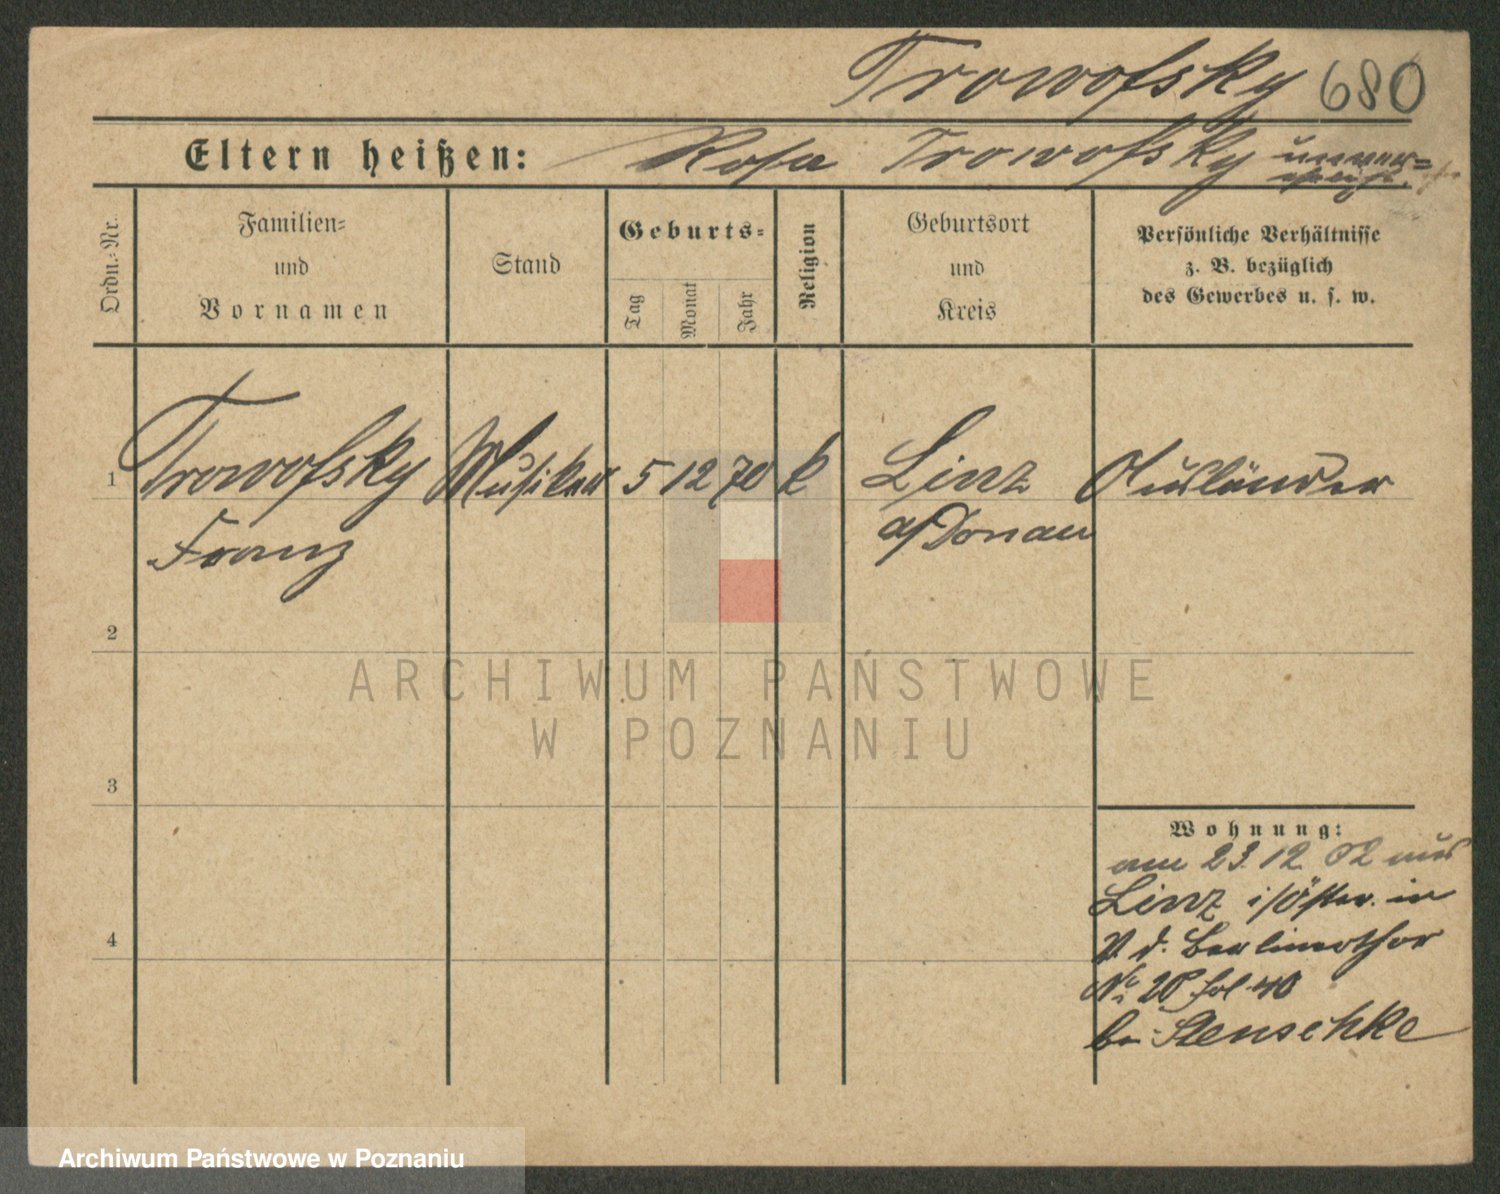 Trowofsky 680
Eltern heißen: Rosa Trowofsky unver=
ehelicht.
Ordn.=Nr.
Familien=
und
Vornamen
Stand
Geburts=
Tag
Monat
Jahr
Religion
Geburtsort
und
Kreis
Persönliche Verhältnisse
z. B. bezüglich
des Gewerbes u. s. w.
1 Trowofsky Musiker 5 12 70 k Linz Ausländer
Franz a/Donau
2
ARCHIWUM PAŃSTWOWE
W POZNANIU
3
Wohnung:
am 23. 12. 02 aus
Linz i/Öster. in
V. d. Berlinerthor
No 20 fol 40
bei Stenschke
4
Archiwum Państwowe w Poznaniu